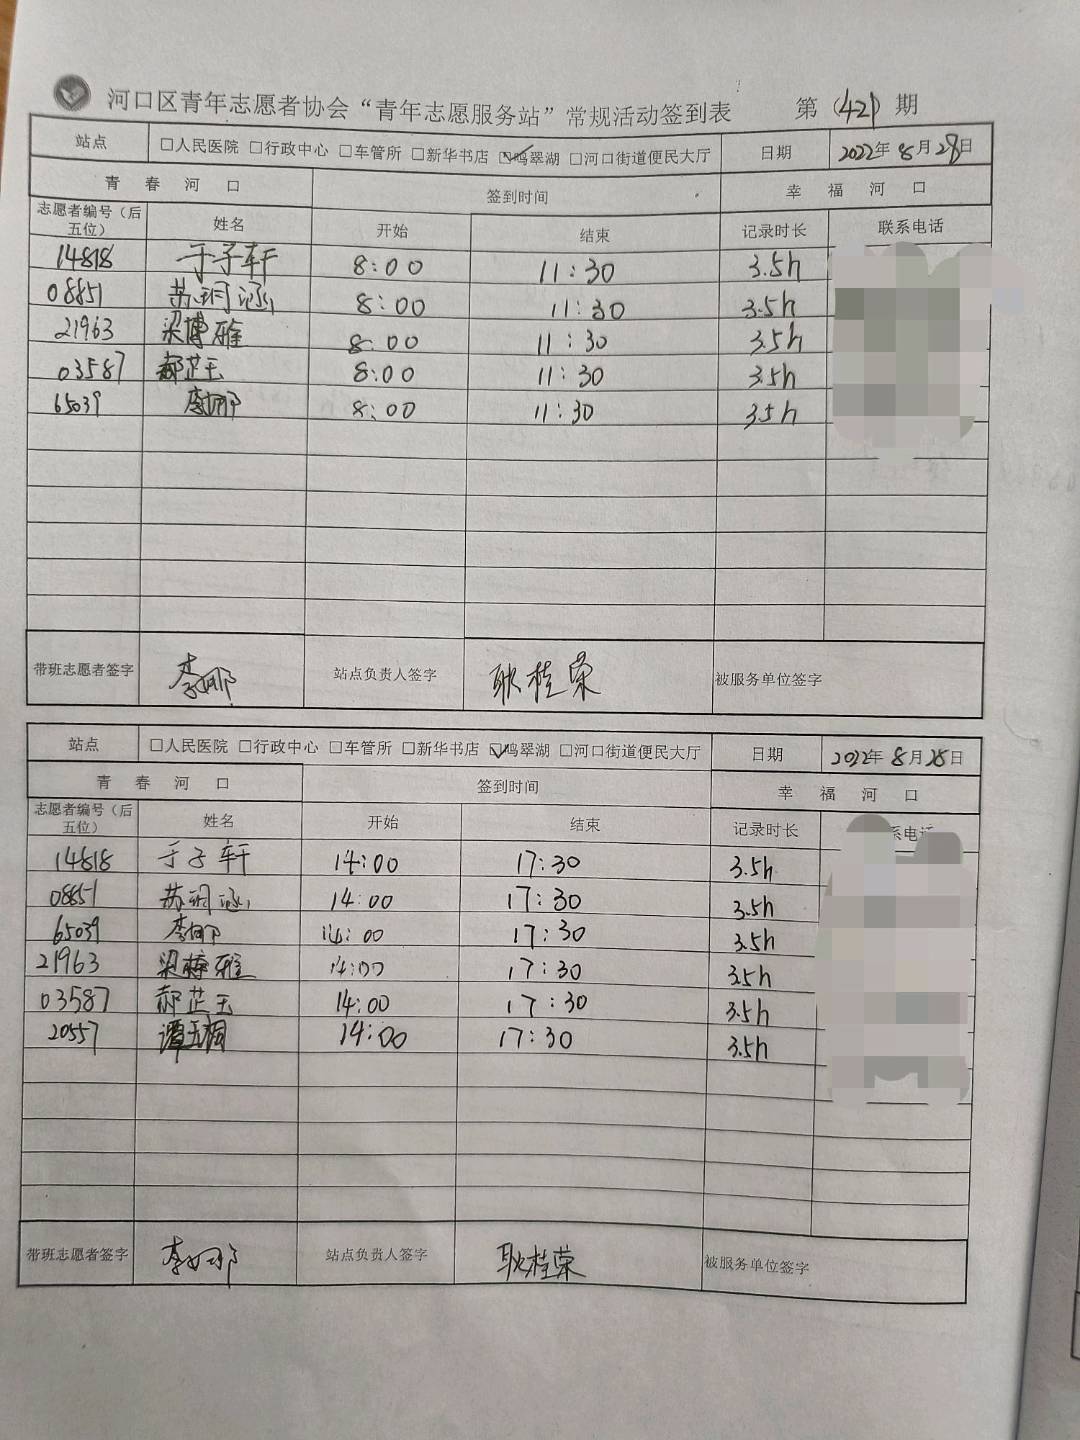 河口区青年志愿者协会“青年志愿服务站”常规活动签到表 第（421）期
站点 □人民医院 □行政中心 □车管所 □新华书店 ☑鸣翠湖 □河口街道便民大厅 日期 2022年8月28日
青春河口 签到时间 幸福河口
志愿者编号（后五位） 姓名 开始 结束 记录时长 联系电话
14818 于子轩 8:00 11:30 3.5h
08851 苏玥涵 8:00 11:30 3.5h
21963 梁博雅 8:00 11:30 3.5h
03587 郝芷玉 8:00 11:30 3.5h
65039 李娜 8:00 11:30 3.5h
带班志愿者签字 李娜 站点负责人签字 耿桂荣 被服务单位签字
站点 □人民医院 □行政中心 □车管所 □新华书店 ☑鸣翠湖 □河口街道便民大厅 日期 2022年8月28日
青春河口 签到时间 幸福河口
志愿者编号（后五位） 姓名 开始 结束 记录时长 系电话
14818 于子轩 14:00 17:30 3.5h
08851 苏玥涵 14:00 17:30 3.5h
65039 李娜 14:00 17:30 3.5h
21963 梁博雅 14:00 17:30 3.5h
03587 郝芷玉 14:00 17:30 3.5h
20557 谭玉桐 14:00 17:30 3.5h
带班志愿者签字 李娜 站点负责人签字 耿桂荣 被服务单位签字